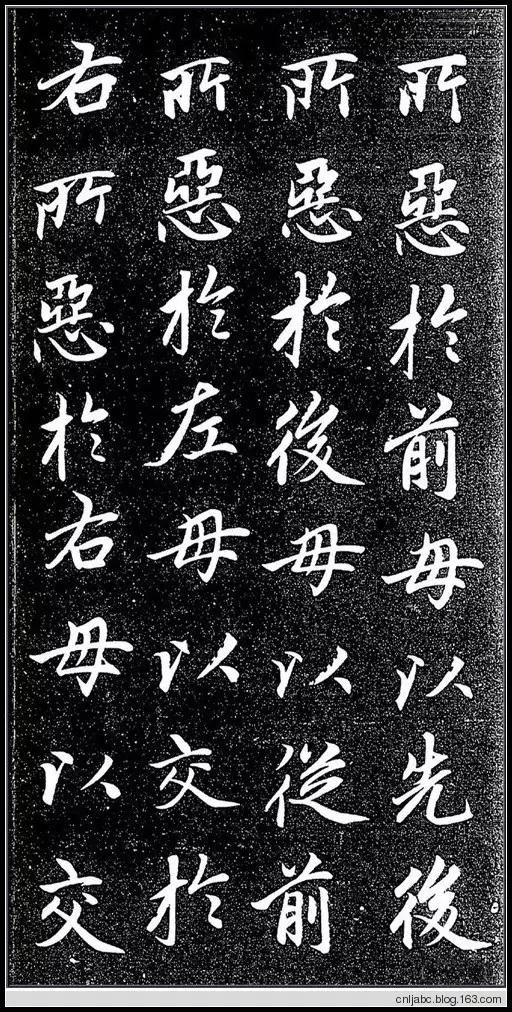 所惡於前毋以先後
所惡於後毋以從前
所惡於左毋以交於
右所惡於右毋以交
cnljabc.blog.163.com